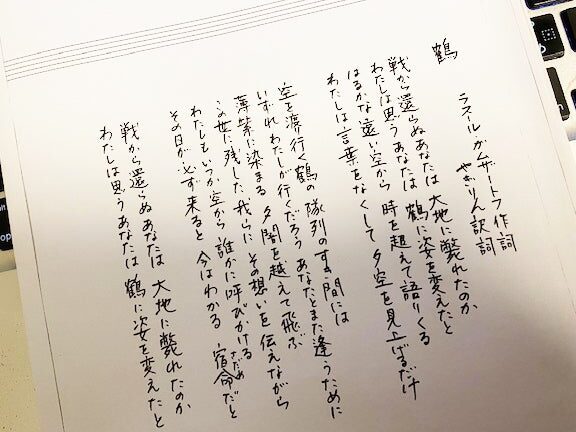 鶴
ラスール・ガムザートフ作詞
やかりん訳詞
戦から還らぬあなたは 大地に斃れたのか
わたしは思うあなたは 鶴に姿を変えたと
はるかな遠い空から 時を超えて語りくる
わたしは言葉をなくして 夕空を見上げるだけ
空を渡り行く鶴の 隊列のすき間には
いずれわたしが行くだろう あなたとまた逢うために
薄紫に染まる 夕闇を越えて飛ぶ
この世に残した我らに その想いを伝えながら
わたしもいつか空から 誰かに呼びかける
その日が必ず来ると 今はわかる 宿命だと
さだめ
戦から還らぬあなたは 大地に斃れたのか
わたしは思うあなたは 鶴に姿を変えたと